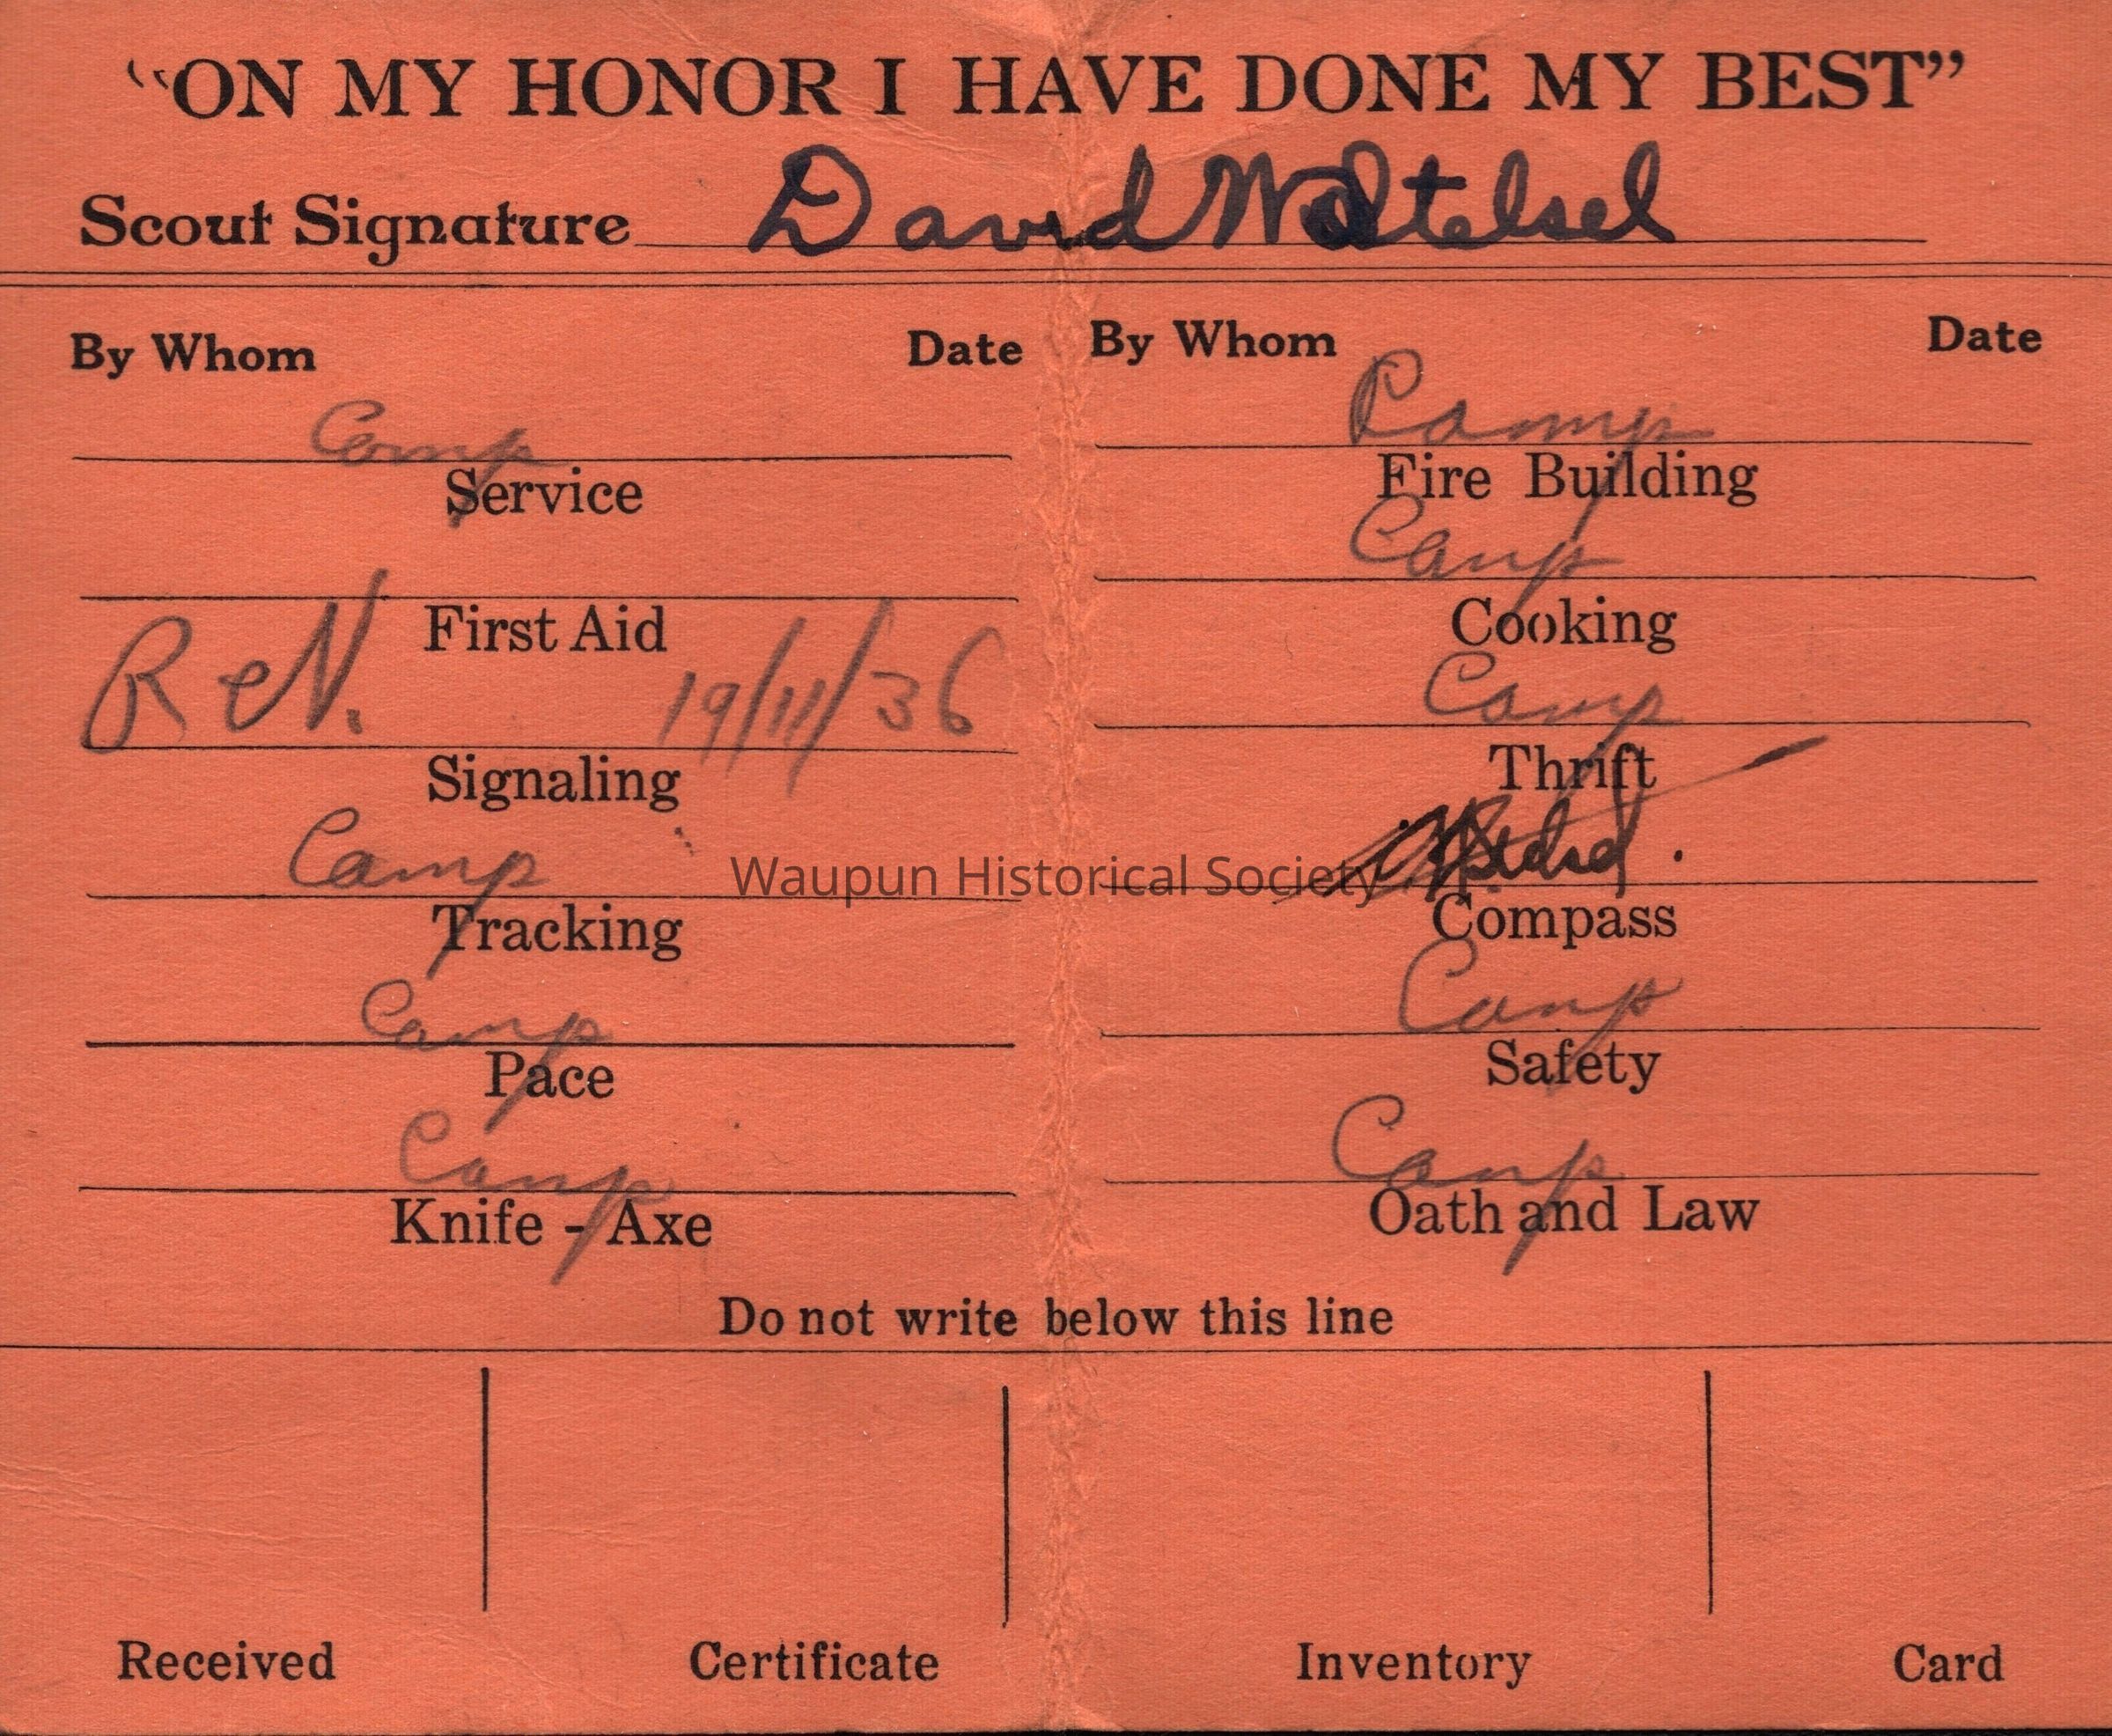 "ON MY HONOR I HAVE DONE MY BEST"
Scout Signature David
By Whom Date
Camp
Service
First Aid
R e N. 19/11/36
Signaling
Camp
Tracking
Camp
Pace
Camp
Knife - Axe
By Whom Date
Camp
Fire Building
Camp
Cooking
Camp
Thrift
Compass
Camp
Safety
Camp
Oath and Law
Waupun Historical Society
Do not write below this line
Received Certificate Inventory Card